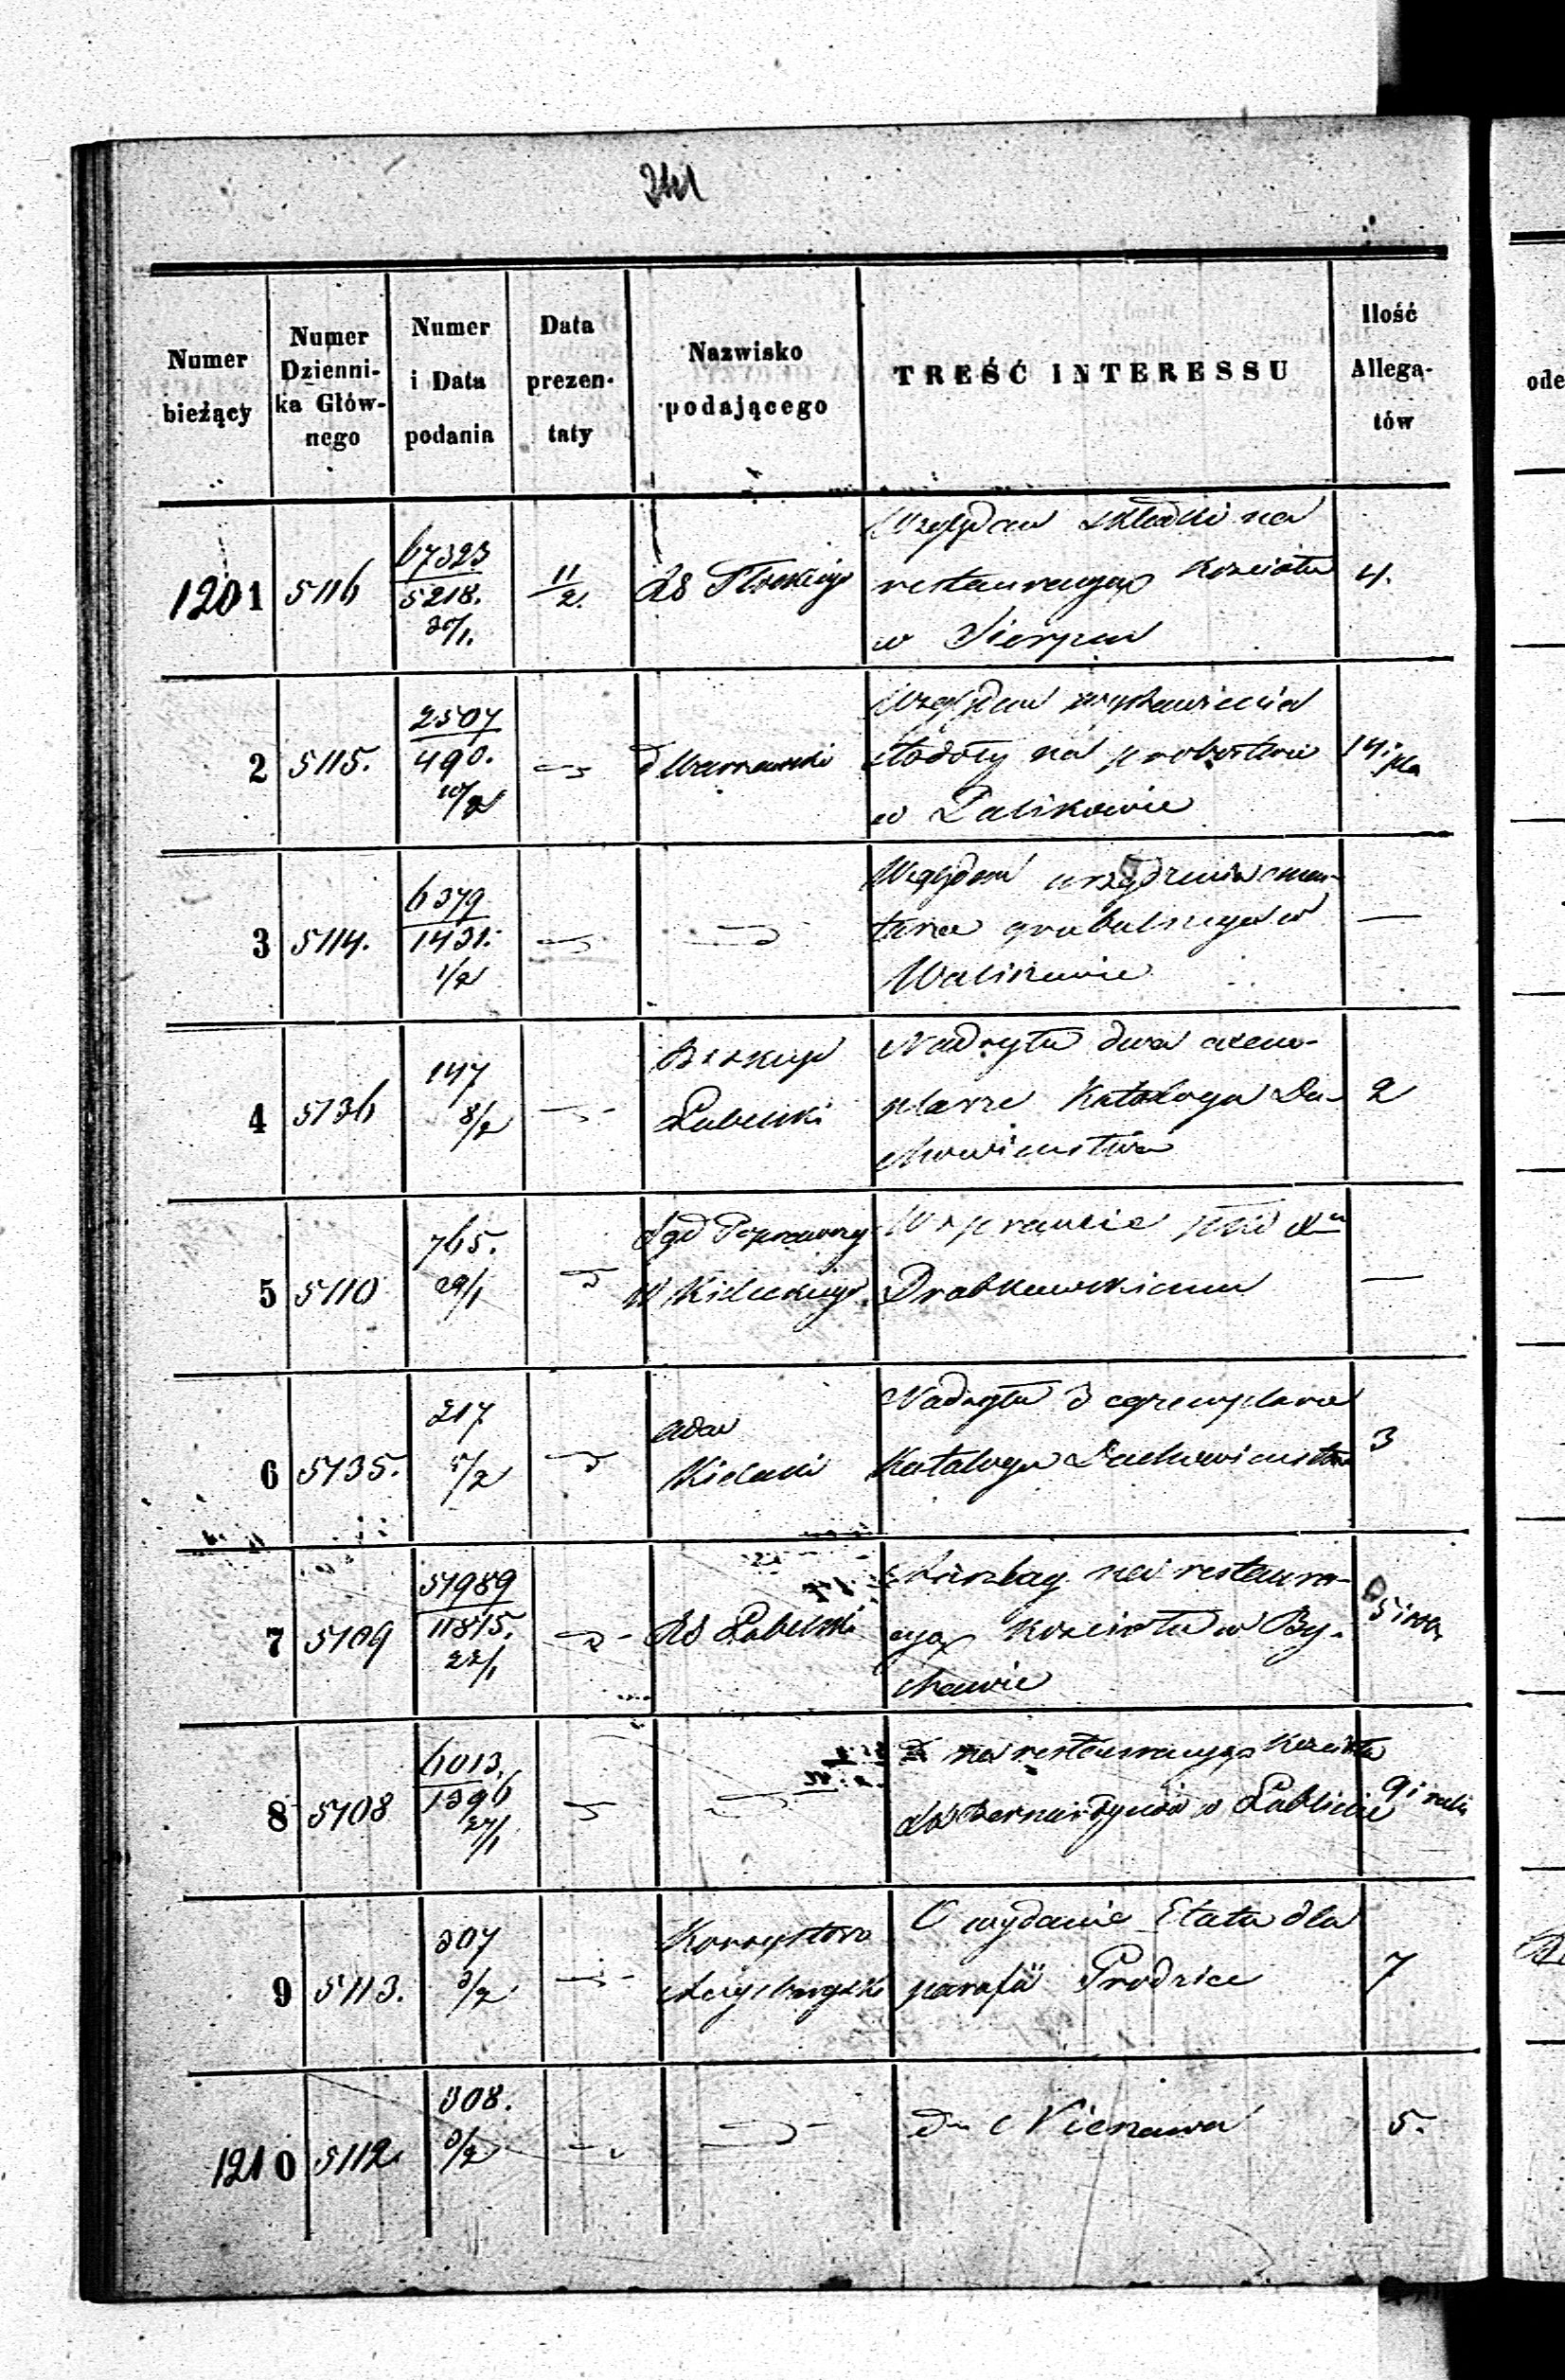 241
Numer bieżący
Numer Dzienni-ka Głów-nego
Numer i Data podania
Data prezen-taty
Nazwisko podającego
TREŚĆ INTERESSU
Ilość Allega-tów
ode
1201 5116 67323 5218. 30/1. 11/2. RG Płockiego Względem składki na 4.
restauracyą Kościoła
w Sierpcu
2 5115. 2507 490. 10/2 d Warszawski Względem wystawienia 14 i pla
stodoły na probostwie
w
3 5114. 6379 1431. 1/2 Względem urządzenia cmen- —
tarza grzebalnego w
4 5136 147 8/2 Biskup Lubelski Nadsyła dwa exem- 2
plarze Katalogu Du-
chowieństwa
5 5110 765. 29/1 Sąd Poprawczy W Kieleckiego W sprawie —
6 5135. 217 5/2 Adm Kielecki Nadsyła 3 egzemplarze 3
Katalogu Duchowieństwa
7 5109 51989 11815. 22/1 RG Lubelski na restaura- 5 i
cyą Kościoła w By-
chawie
8 5108 6013. 1396 27/1 d na restauracyą Kościoła 9 i
Bernardynów w Lublinie
9 5113. 307 3/2 Konsystorz O wydanie Etatu dla 7
parafii Prodzice
1210 5112. 308. 3/2 do 5.